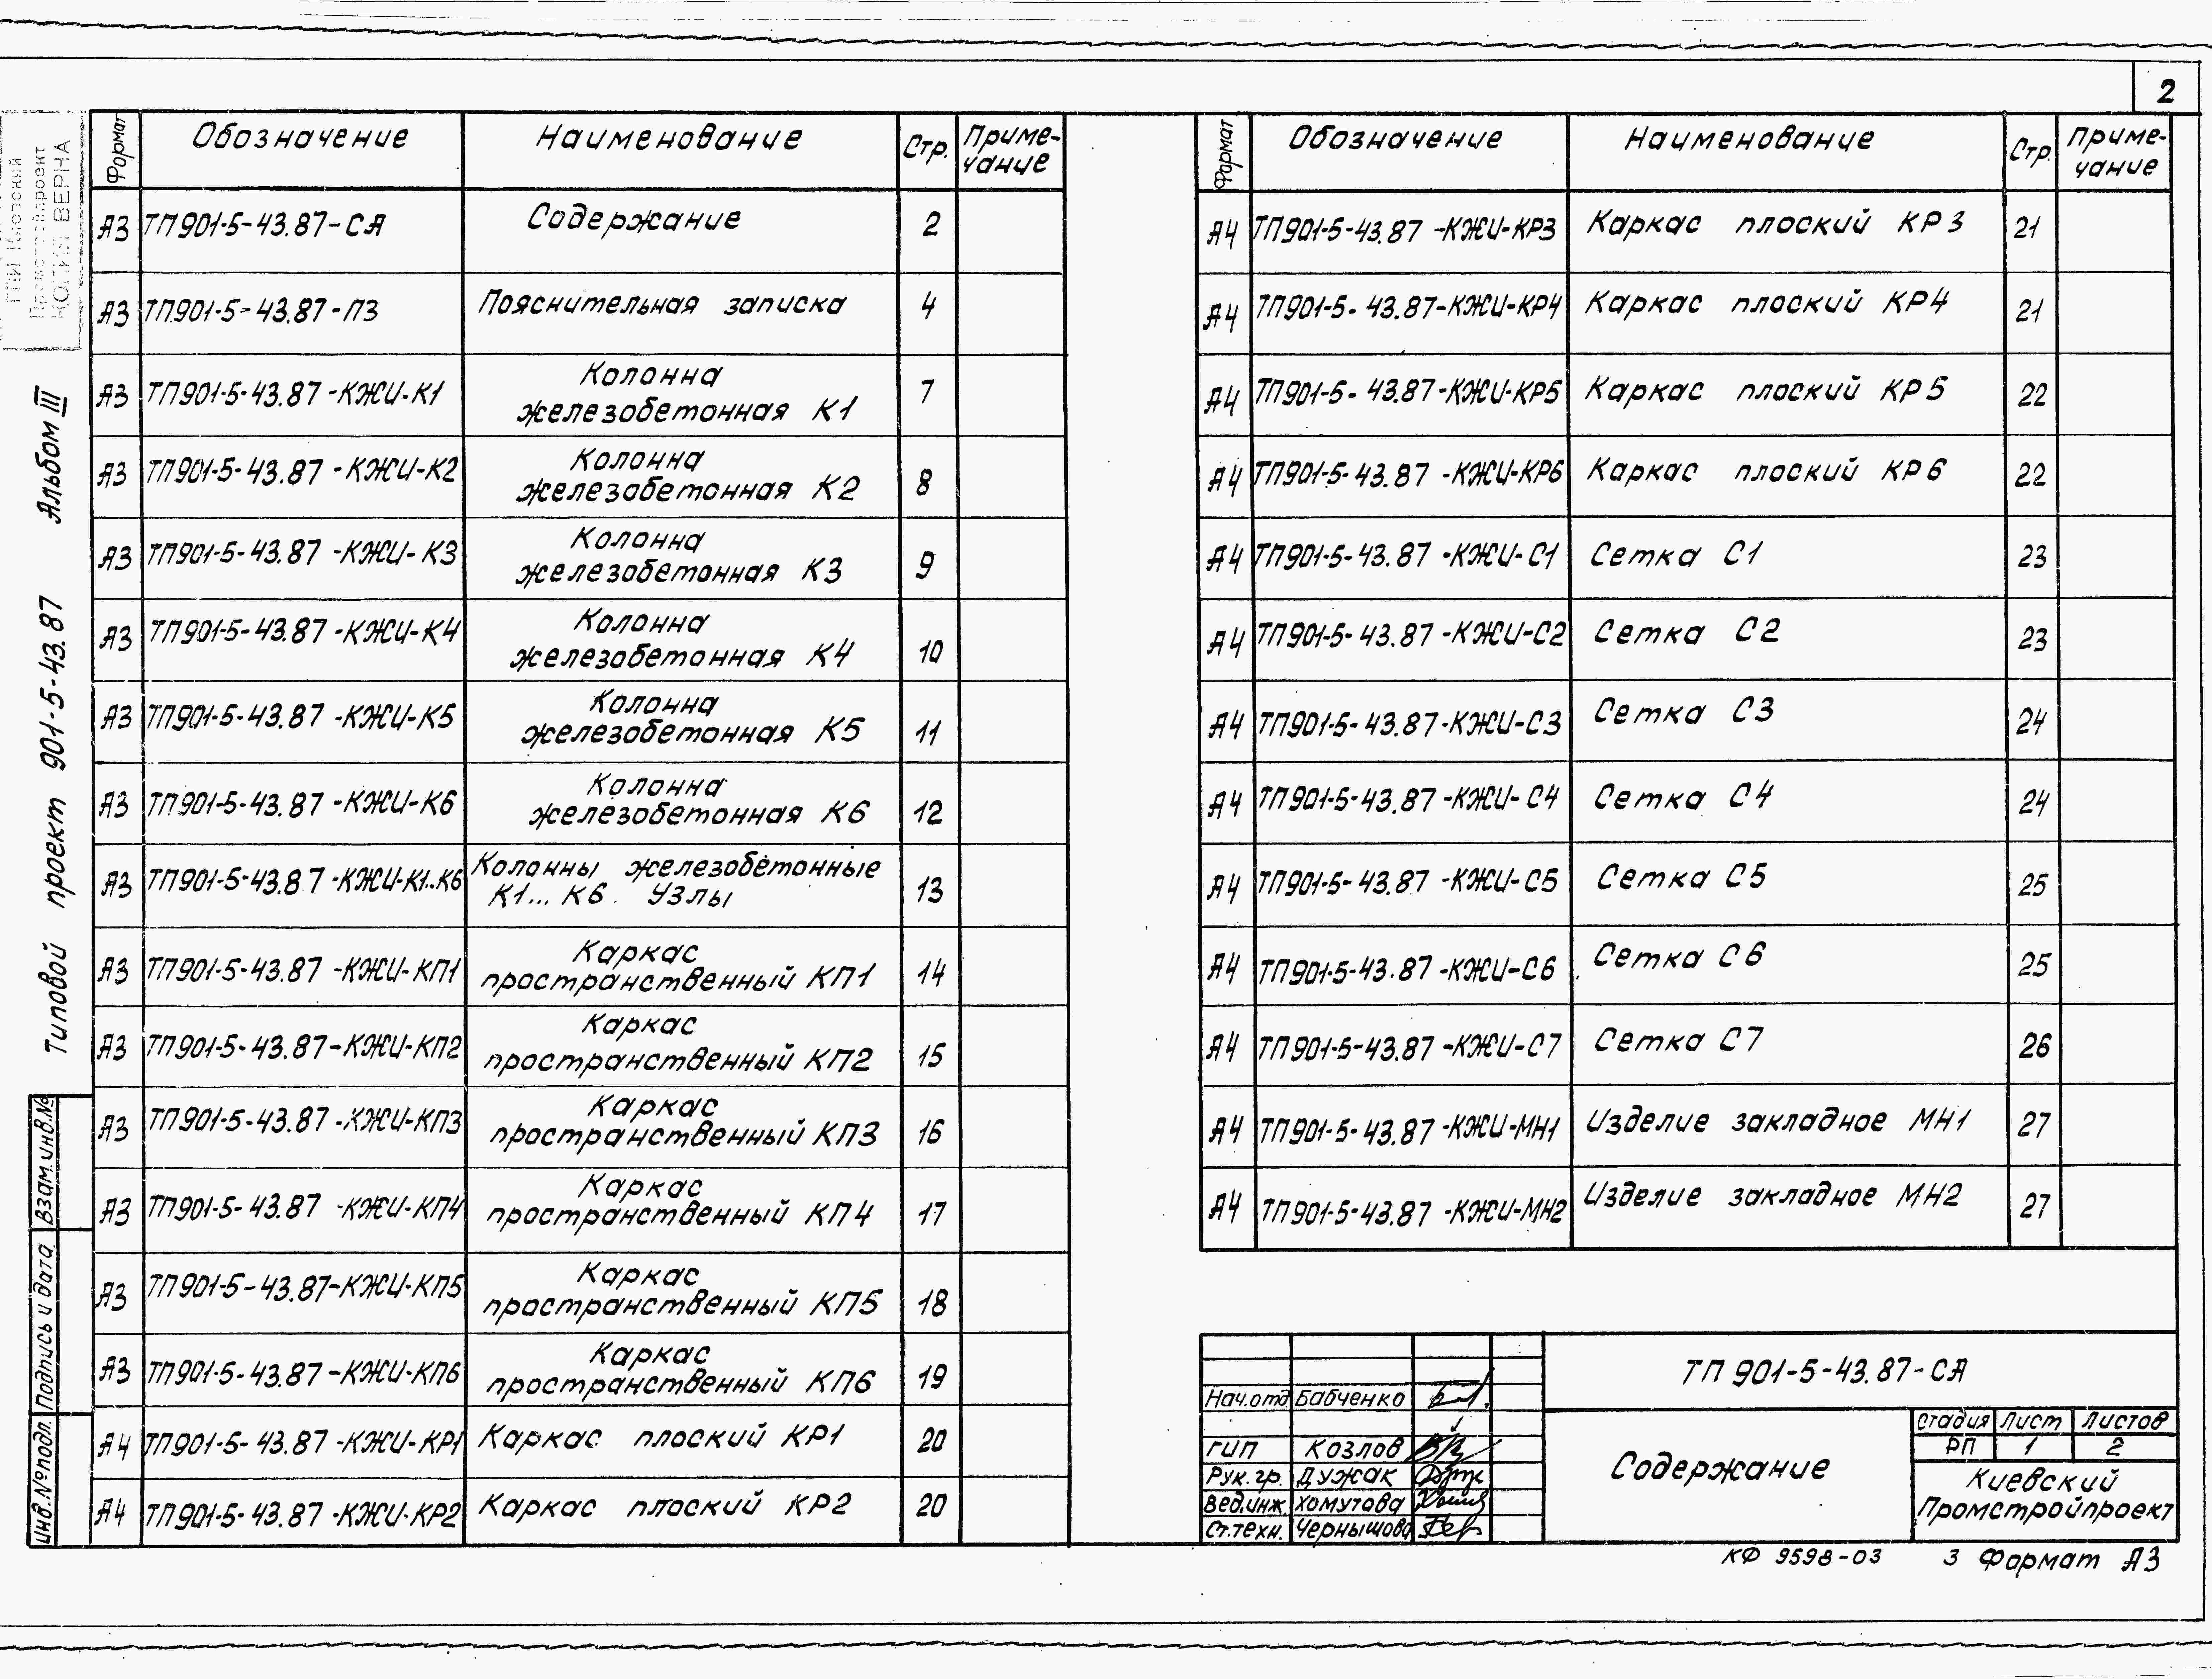 2
ГПИ Киевский
Промстройпроект
КОПИЯ ВЕРНА
Типовой проект 901-5-43.87 Альбом III
Взам.инв.№
Подпись и дата
Инв.№подл.
Формат Обозначение Наименование Стр. Приме-
чание
А3 ТП901-5-43.87-СА Содержание 2
А3 ТП901-5-43.87-ПЗ Пояснительная записка 4
А3 ТП901-5-43.87-КЖИ-К1 Колонна
железобетонная К1 7
А3 ТП901-5-43.87-КЖИ-К2 Колонна
железобетонная К2 8
А3 ТП901-5-43.87-КЖИ-К3 Колонна
железобетонная К3 9
А3 ТП901-5-43.87-КЖИ-К4 Колонна
железобетонная К4 10
А3 ТП901-5-43.87-КЖИ-К5 Колонна
железобетонная К5 11
А3 ТП901-5-43.87-КЖИ-К6 Колонна
железобетонная К6 12
А3 ТП901-5-43.87-КЖИ-К1..К6 Колонны железобетонные
К1...К6. Узлы 13
А3 ТП901-5-43.87-КЖИ-КП1 Каркас
пространственный КП1 14
А3 ТП901-5-43.87-КЖИ-КП2 Каркас
пространственный КП2 15
А3 ТП901-5-43.87-КЖИ-КП3 Каркас
пространственный КП3 16
А3 ТП901-5-43.87-КЖИ-КП4 Каркас
пространственный КП4 17
А3 ТП901-5-43.87-КЖИ-КП5 Каркас
пространственный КП5 18
А3 ТП901-5-43.87-КЖИ-КП6 Каркас
пространственный КП6 19
А4 ТП901-5-43.87-КЖИ-КР1 Каркас плоский КР1 20
А4 ТП901-5-43.87-КЖИ-КР2 Каркас плоский КР2 20
Формат Обозначение Наименование Стр. Приме-
чание
А4 ТП901-5-43.87-КЖИ-КР3 Каркас плоский КР3 21
А4 ТП901-5-43.87-КЖИ-КР4 Каркас плоский КР4 21
А4 ТП901-5-43.87-КЖИ-КР5 Каркас плоский КР5 22
А4 ТП901-5-43.87-КЖИ-КР6 Каркас плоский КР6 22
А4 ТП901-5-43.87-КЖИ-С1 Сетка С1 23
А4 ТП901-5-43.87-КЖИ-С2 Сетка С2 23
А4 ТП901-5-43.87-КЖИ-С3 Сетка С3 24
А4 ТП901-5-43.87-КЖИ-С4 Сетка С4 24
А4 ТП901-5-43.87-КЖИ-С5 Сетка С5 25
А4 ТП901-5-43.87-КЖИ-С6 Сетка С6 25
А4 ТП901-5-43.87-КЖИ-С7 Сетка С7 26
А4 ТП901-5-43.87-КЖИ-МН1 Изделие закладное МН1 27
А4 ТП901-5-43.87-КЖИ-МН2 Изделие закладное МН2 27
ТП 901-5-43.87-СА
Нач.отд. Бабченко
ГИП Козлов
Рук.гр. Дужак
Вед.инж. Хомутова
Ст.техн. Чернышова
Содержание
Стадия Лист Листов
РП 1 2
Киевский
Промстройпроект
КФ 9598-03 3 Формат А3